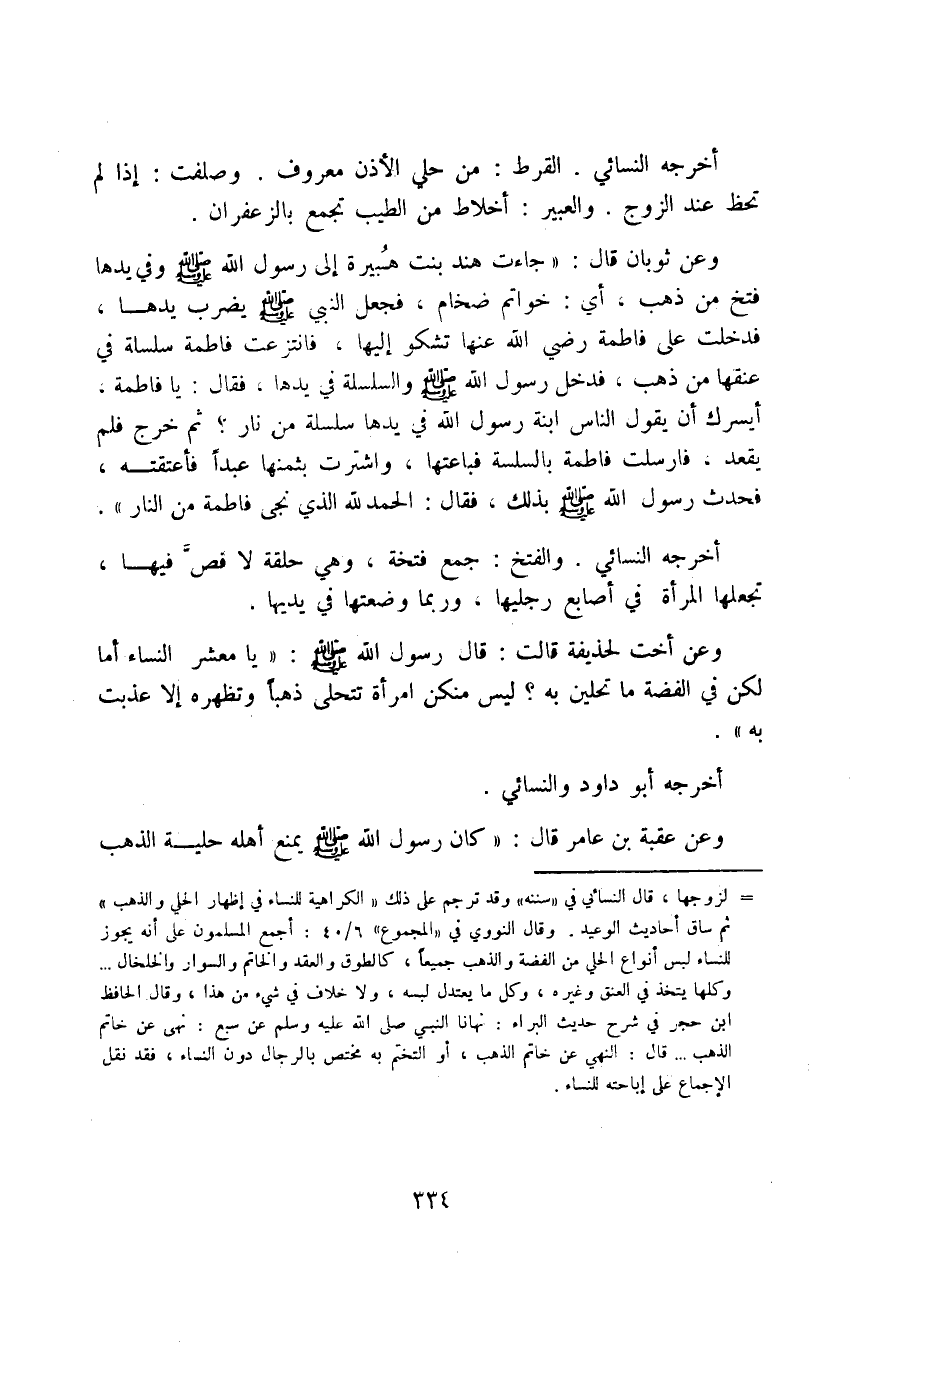 أخرجه النسائي . القرط : من حلي الأذن معروف . وصلفت : إذا لم
تحظ عند الزوج . والعبير : أخلاط من الطيب تجمع بالزعفران .
وعن ثوبان قال : « جاءت هند بنت هُبيرة إلى رسول الله ﷺ وفي يدها
فتخ من ذهب ، أي : خواتم ضخام ، فجعل النبي ﷺ يضرب يدهـــا ،
فدخلت على فاطمة رضي الله عنها تشكو إليها ، فانتزعت فاطمة سلسلة في
عنقها من ذهب ، فدخل رسول الله ﷺ والسلسلة في يدها ، فقال : يا فاطمة ،
أيسرك أن يقول الناس ابنة رسول الله في يدها سلسلة من نار ؟ ثم خرج فلم
يقعد ، فارسلت فاطمة بالسلسة فباعتها ، واشترت بثمنها عبداً فأعتقتـــه ،
فحدث رسول الله ﷺ بذلك ، فقال : الحمد لله الذي نجى فاطمة من النار » .
أخرجه النسائي . والفتخ : جمع فتخة ، وهي حلقة لا فصَّ فيهـــا ،
تجعلها المرأة في أصابع رجليها ، وربما وضعتها في يديها .
وعن أخت لحذيفة قالت : قال رسول الله ﷺ : « يا معشر النساء أما
لكن في الفضة ما تحلين به ؟ ليس منكن امرأة تتحلى ذهباً وتظهره إلا عذبت
به » .
أخرجه أبو داود والنسائي .
وعن عقبة بن عامر قال : « كان رسول الله ﷺ يمنع أهله حليـــة الذهب
= لزوجها ، قال النسائي في «سننه» وقد ترجم على ذلك « الكراهية للنساء في إظهار الحلي والذهب »
ثم ساق أحاديث الوعيد . وقال النووي في «المجموع» ٤٠/٦ : أجمع المسلمون على أنه يجوز
للنساء لبس أنواع الحلي من الفضة والذهب جميعاً ، كالطوق والعقد والخاتم والسوار والخلخال ...
وكلها يتخذ في العنق وغيره ، وكل ما يعتدل لبسه ، ولا خلاف في شيء من هذا ، وقال الحافظ
ابن حجر في شرح حديث البراء : نهانا النبي صلى الله عليه وسلم عن سبع : نهى عن خاتم
الذهب ... قال : النهي عن خاتم الذهب ، أو التختم به مختص بالرجال دون النساء ، فقد نقل
الإجماع على إباحته للنساء .
٣٣٤